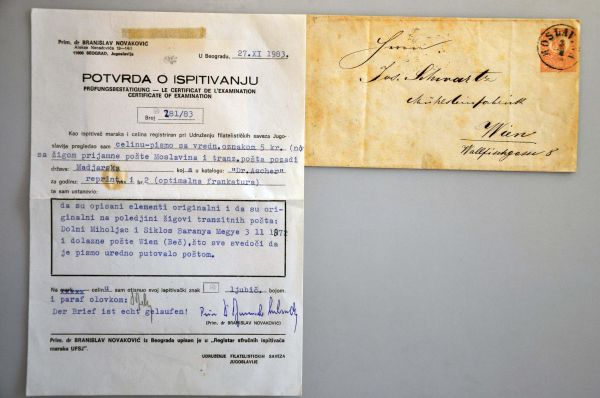 Prim. dr BRANISLAV NOVAKOVIĆ
Alekse Nenadovića 19—1
11000 BEOGRAD, Jugoslavija
U Beogradu, 27.XI 1983.
POTVRDA O ISPITIVANJU
PRÜFUNGSBESTÄTIGUNG — LE CERTIFICAT DE L'EXAMINATION
CERTIFICATE OF EXAMINATION
Broj 281/83
Kao ispitivač maraka i celina registriran pri Udruženju filatelističkih saveza Jugo-
slavije pregledao sam celinu-pismo sa vredn.oznakom 5 kr.
sa žigom prijamne pošte Moslavina i tranz.pošta pozadi
država: Madjarska koj u katalogu: "Dr.Ascher"
reprint, i br. 2 (optimalna frankatura)
za godinu:
ta sam ustanovio:
da su opisani elementi originalni i da su ori-
ginalni na poledjini žigovi tranzitnih pošta:
Dolni Miholjac i Siklos Baranya Megye 3 11 1872
i dolazne pošte Wien (Beč),što sve svedoči da
je pismo uredno putovalo poštom.
Na celinu sam otisnuo svoj ispitivački znak ljubič. bojom
i paraf olovkom:
Der Brief ist echt gelaufen!
(Prim. dr BRANISLAV NOVAKOVIĆ)
Prim. dr BRANISLAV NOVAKOVIĆ iz Beograda upisan je u „Registar stručnih ispitivača
maraka UFSJ".
UDRUŽENJE FILATELISTIČKIH SAVEZA
JUGOSLAVIJE
Herrn
Jos. Schwartz
Wien
Wallfischgasse 8